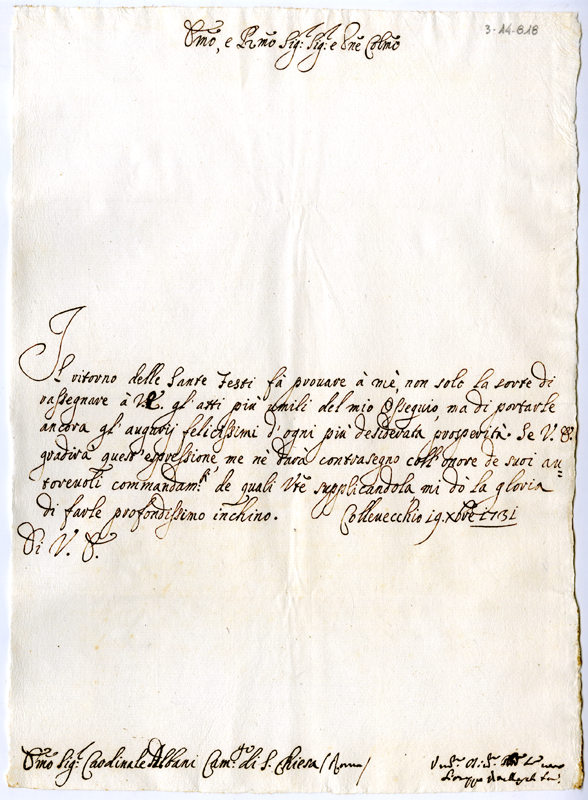 3-14-818
Emo, e Rmo Sig: Sig: e Pne Colmo
Il ritorno delle Sante Feste fà prouare à mè, non solo la sorte di
rassegnare à V.E. gl'atti più umili del mio Ossequio, ma di portarle
ancora gl'augurij felicissimi d'ogni più desiderata prosperità. Se V. E.
gradirà quest'espressione me ne darà contrasegno coll'onore de suoi au=
toreuoli commandam.ti de quali V.E. supplicandola mi dò la gloria
di farle profondissimo inchino. Collevecchio 19. Xbre 1731
Di V. E.
Emo Sig.r Cardinale Albani Cam.go di S. Chiesa (Roma)